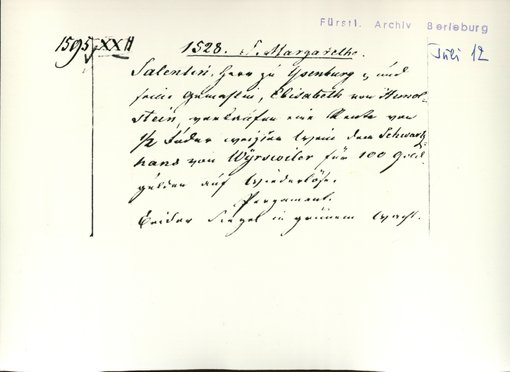 Fürstl. Archiv Berleburg
1595 XXII 1528. S. Margarethe.
Juli 12
Salentin, Herr zu Ysenburg, und
seine Gemahlin, Elisabeth von Hunol-
stein, verkaufen eine Rente von
1/2 Fuder weißen Wein dem Schwartz
hans von Wyrswiler für 100 Gold-
gulden auf Wiederlöse.
Pergament.
Beider Siegel in grünem Wachs.